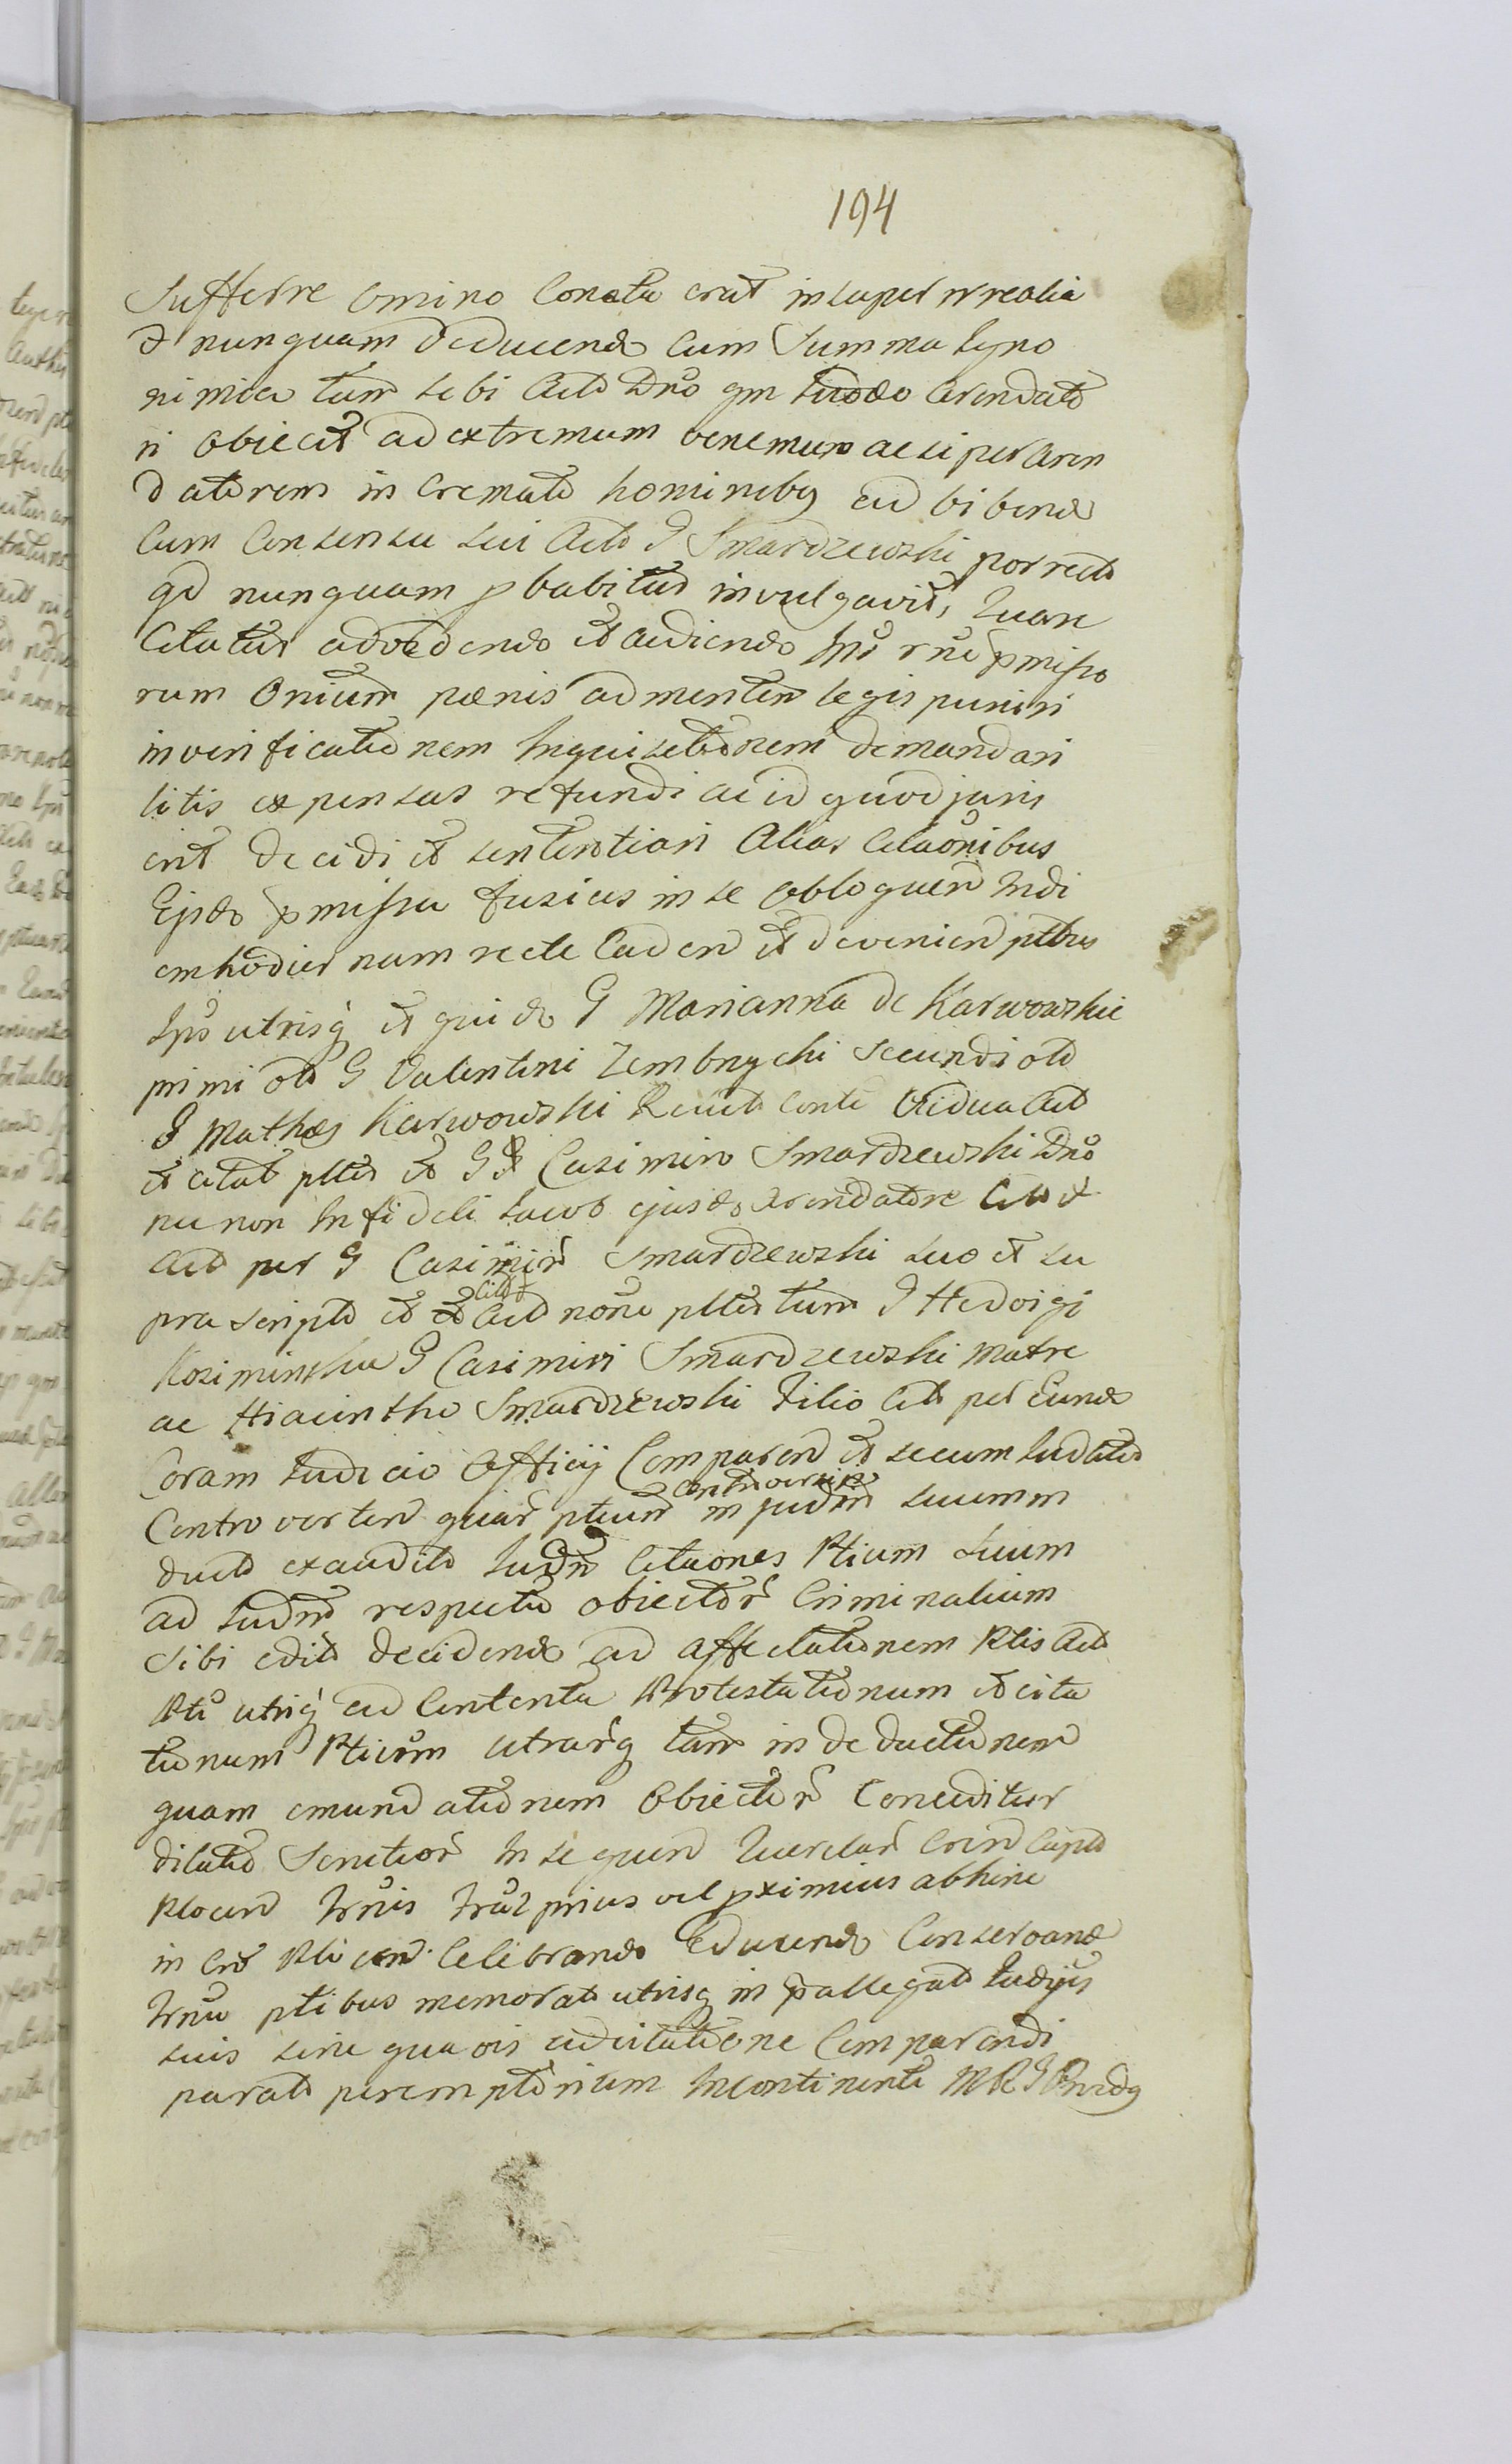 194
Sufferre omino Conata erat insuper irrealia
et nunquam deducenda cum Summa Igno
nimia tam sibi Acto Dno qm Suodo Arendato
ri obiecit ad extremum venenum ac si per Aren
datorem in Cremato hominibg ad bibend
Cum Consensu sui Acto G Smardzewski porrecto
qd nunquam pbabitur invulgavit, Quare
Citatur ad videndo et audiendo pmisso
rum Onium pænis ad mentem legis puniri
in verificationem Inquisitionem demandari
litis expensas refundi ac id quod juris
erit decidi et sententiari Alias Citaonibus
Ejsdo pmissa fusius in se obloquen Indi
em hodiernum recte Caden et devenien ptbus
Ipis utrisq et quido G Marianna de Karwowskie
primi oto G Valentini Zembrzychi Secundi oto
G Mathæj Karwowski Relicta Vidua Act
et citat pltes et G G Casimiro Smardzewski Dno
nec non Infideli Iacob ejusdo Arendatore Cito et
Act per G Casimir Smardzewski suo et su
pra scripto et Citt Act noie pltes tum G Hedvigi
Kosiminska G Casimiri Smardzewski Matre
ac Hiacintho Smardzewski Filio Citt per Eund
Coram Iudicio Officij Comparen et secum Iudlter
Controverten quar ptium Controversijs in judm suum in
ducto exaudito Iudm Citaones Ptium Suum
ad Iudm respectu obiector Criminalium
Sibi edito decidend ad Affectationem Ptis Act
Pti utriq ad Contenta Protestationum et cita
tionum Ptium utrarq tam in deductionem
quam emundationem Obiector Conceditur
dilatio Scrutior In sequen Querelar Coram Capto
Plocen prius vel pximius abhinc
in Cre Plicen Celebrando Educendo Conservand
ptibus memorat utrisq in pallegat Iudijs
suis sine quavis adcitatione Comparendi
parato peremptorium Incontinenti MR G